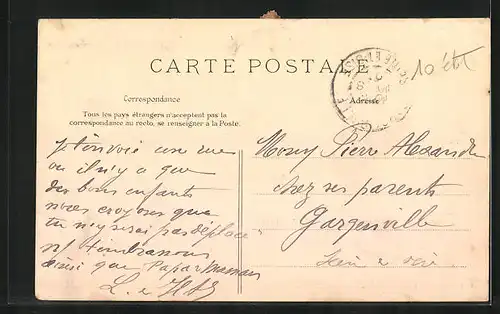 10 été
CARTE POSTALE
Correspondance
Adresse
Tous les pays étrangers n'acceptent pas la
correspondance au recto, se renseigner à la Poste.
je t'envoie une vue
ou il n'y a que
des bons enfants
nous croyons que
tu n'y serai pas déplacé
nt t'embrassons
ainsi que Papa Maman
L. et
Pierre Alexandre
chez ses parents
Gargenville
Seine et Oise